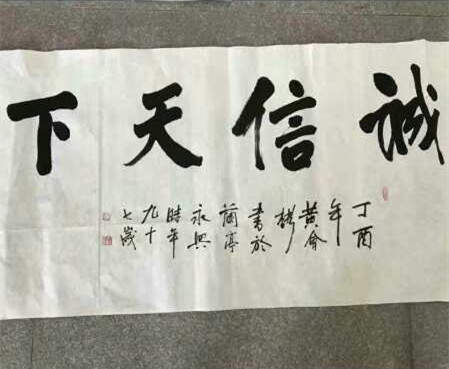 誠信天下
丁酉
年
黄會
書於
蘭亭
永興
時年
九十
七歲